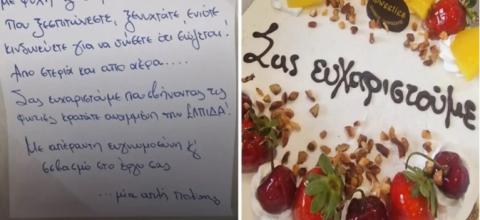 με ψυχή
Που ξεσπιτώνεστε, ξενυχτάτε, ενίοτε
κινδυνεύετε για να σώσετε ότι καίγεται!
Απο στεριά και απο αέρα....
Σας ευχαριστούμε που σβήνοντας τις
φωτιές κρατάτε αναμμένη την ΕΛΠΙΔΑ!
Με απέραντη ευγνωμοσύνη κ'
σεβασμό στο έργο σας
...μία απλή πολίτης
Sweetica
Σας ευχαριστούμε